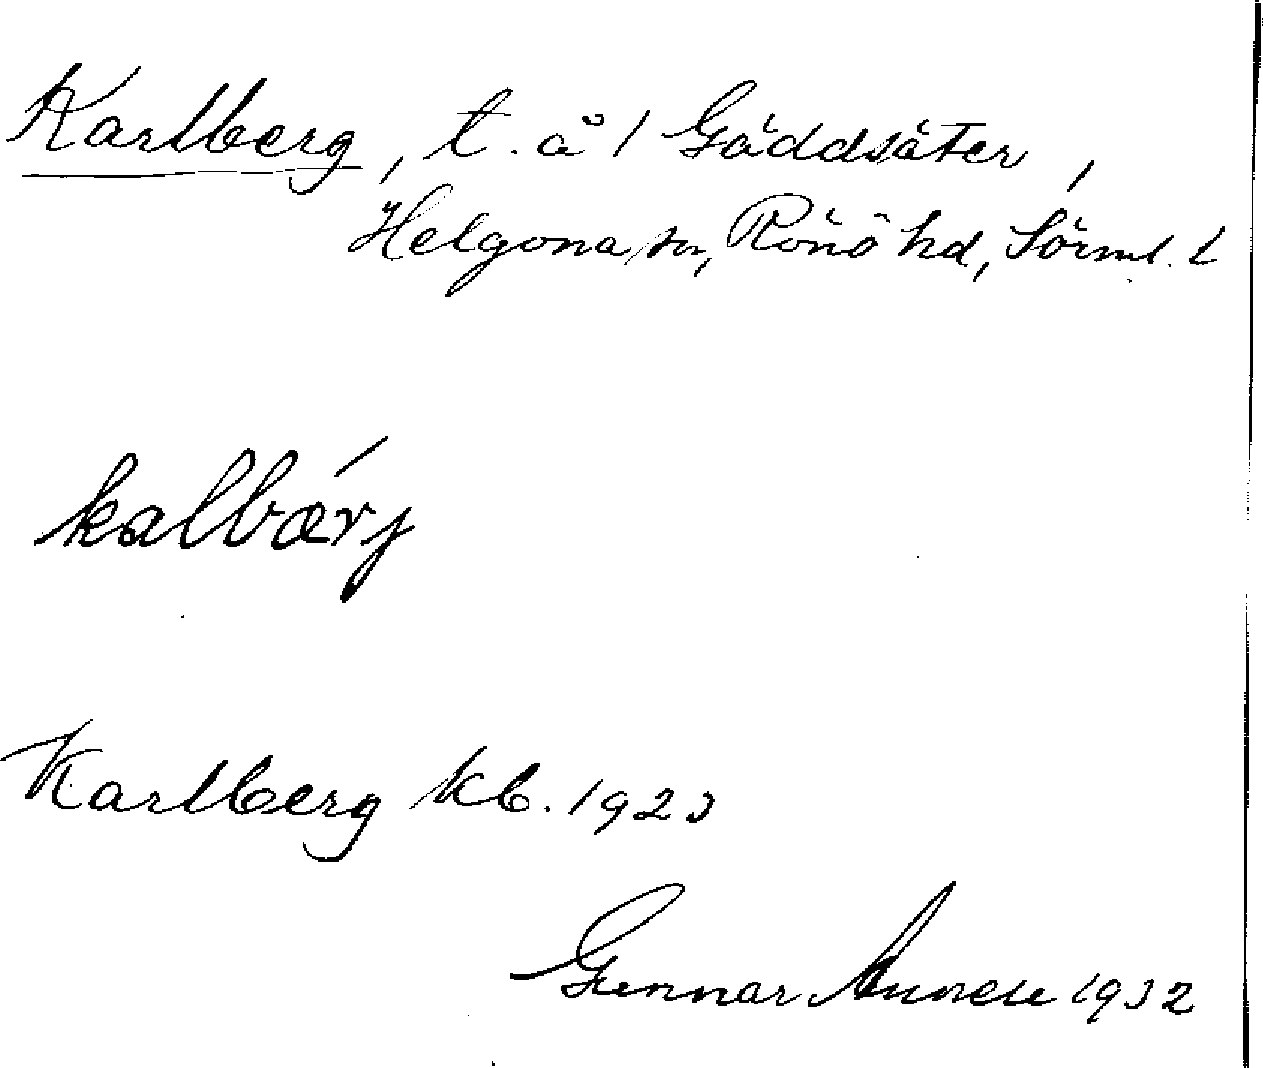 Karlberg, t. å 1 Gäddsäter,
Helgona sn, Rönö hd, Sörml. l
kalbærj
Karlberg kb. 1923
Gunnar 1932